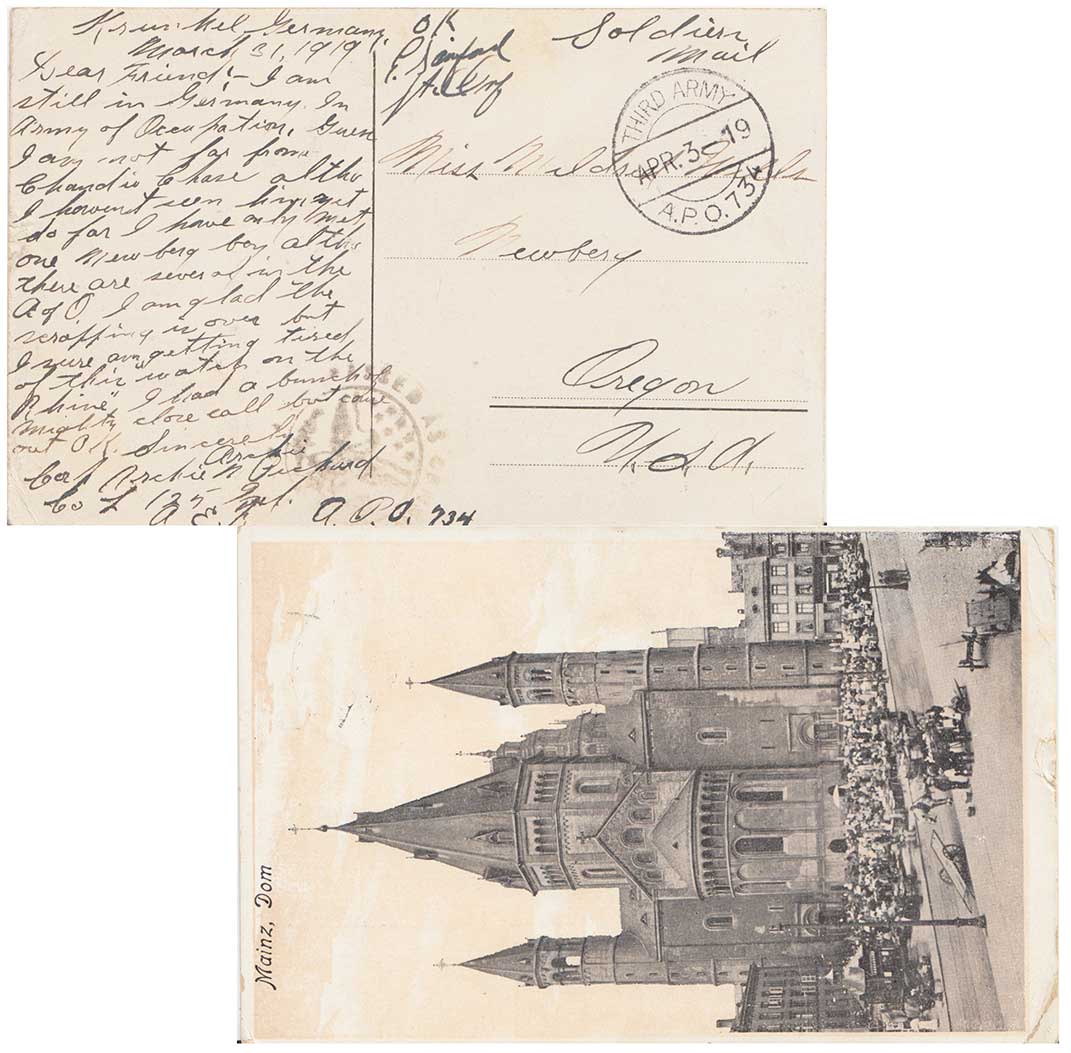 Krunkel Germany
March 31, 1919.
Dear Friend:- I am
still in Germany. In
Army of Occupation. Guess
I am not far from
Chandie Chase altho
I havent seen him yet
so far I have only met
one Newberg boy altho
there are several in the
A of O. I am glad the
scrapping is over but
I sure am getting tired
of this "watch on the
Rhine". I had a bunch of
mighty close call but came
out O.K. Sincerely
Archie
Corp Archie N Pickard
Co L 125 Inf.
A. E. F. A. P. O. 734
OK
Soldiers
Mail
THIRD ARMY
APR. 3 19
A.P.O. 734
Miss Mildred
Newberg
Oregon
U.S.A.
PASSED AS
Mainz, Dom